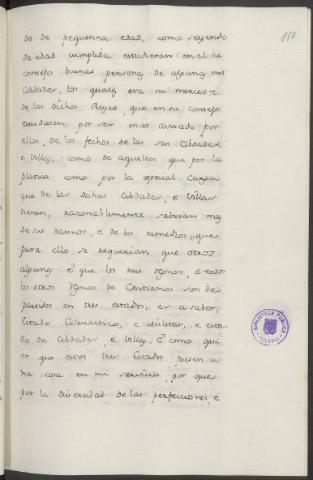 150
do de pequenna edad, como seyendo
de edad cumplida estudieran en el su
consejo buenas personas de algunas mis
Cibdades, los quales era mi merced e
de los dichos Reyes, que en su consejo
estudiesen, por ser mas avisado por
ellos, de los fechos de las sus Cibdades,
e Villas, como de aquellos que por la
platica como por la especial Carga
que de las dichas Cibdades, e Villas
tienen, razonablemente sabrian mas
de sus dannos, e de los remedios, que
para ello se requerian que otros
algunos. E que los mis Regnos, e todos
los otros Regnos de Cristianos son de
partidos en tres estados, es a saber,
Estado Eclesiastico, e Militar, e esta-
do de Cibdades, e Villas: E como qui
er que estos tres Estados fuesen u
na cosa en mi servicio, por que
por la diversidad de las profesiones, e
BIBLIOTECA PUBLICA
TOLEDO